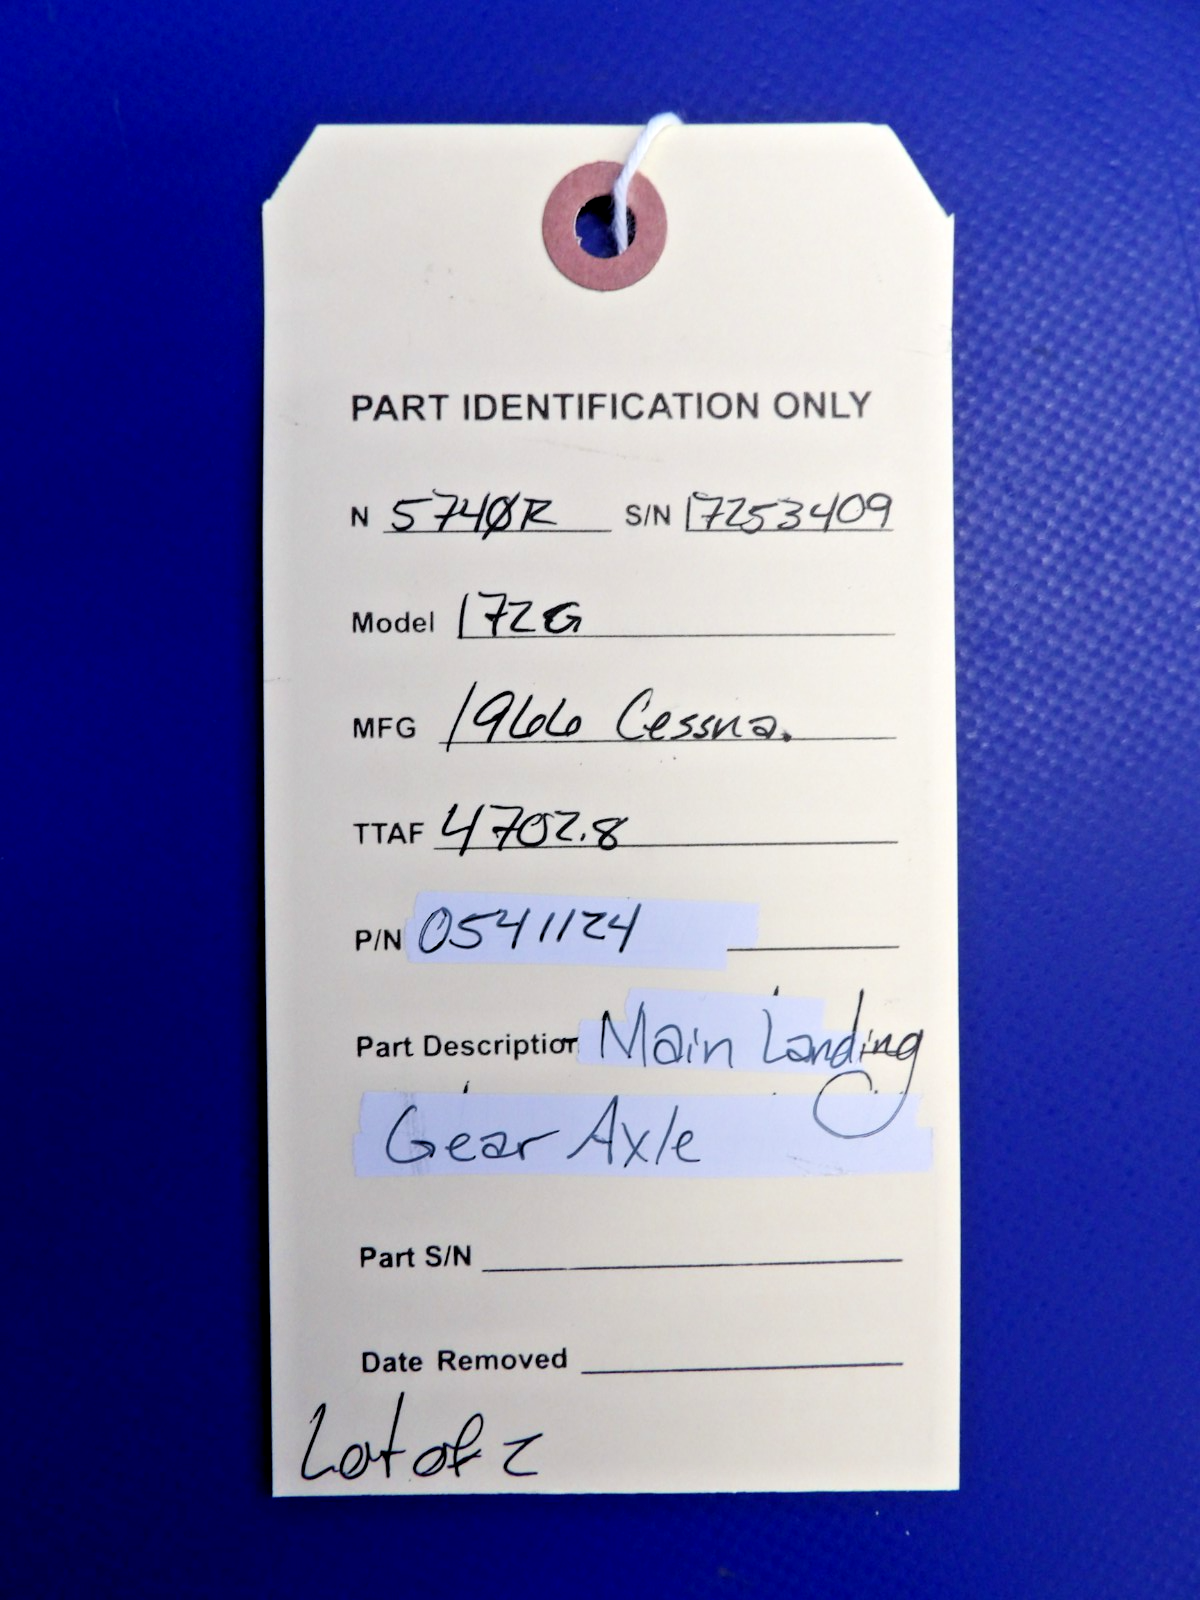 PART IDENTIFICATION ONLY
N 5740R S/N 17253409
Model 172G
MFG 1966 Cessna.
TTAF 4702.8
P/N 0541124
Part Description Main Landing
Gear Axle
Part S/N
Date Removed
Lot of 2